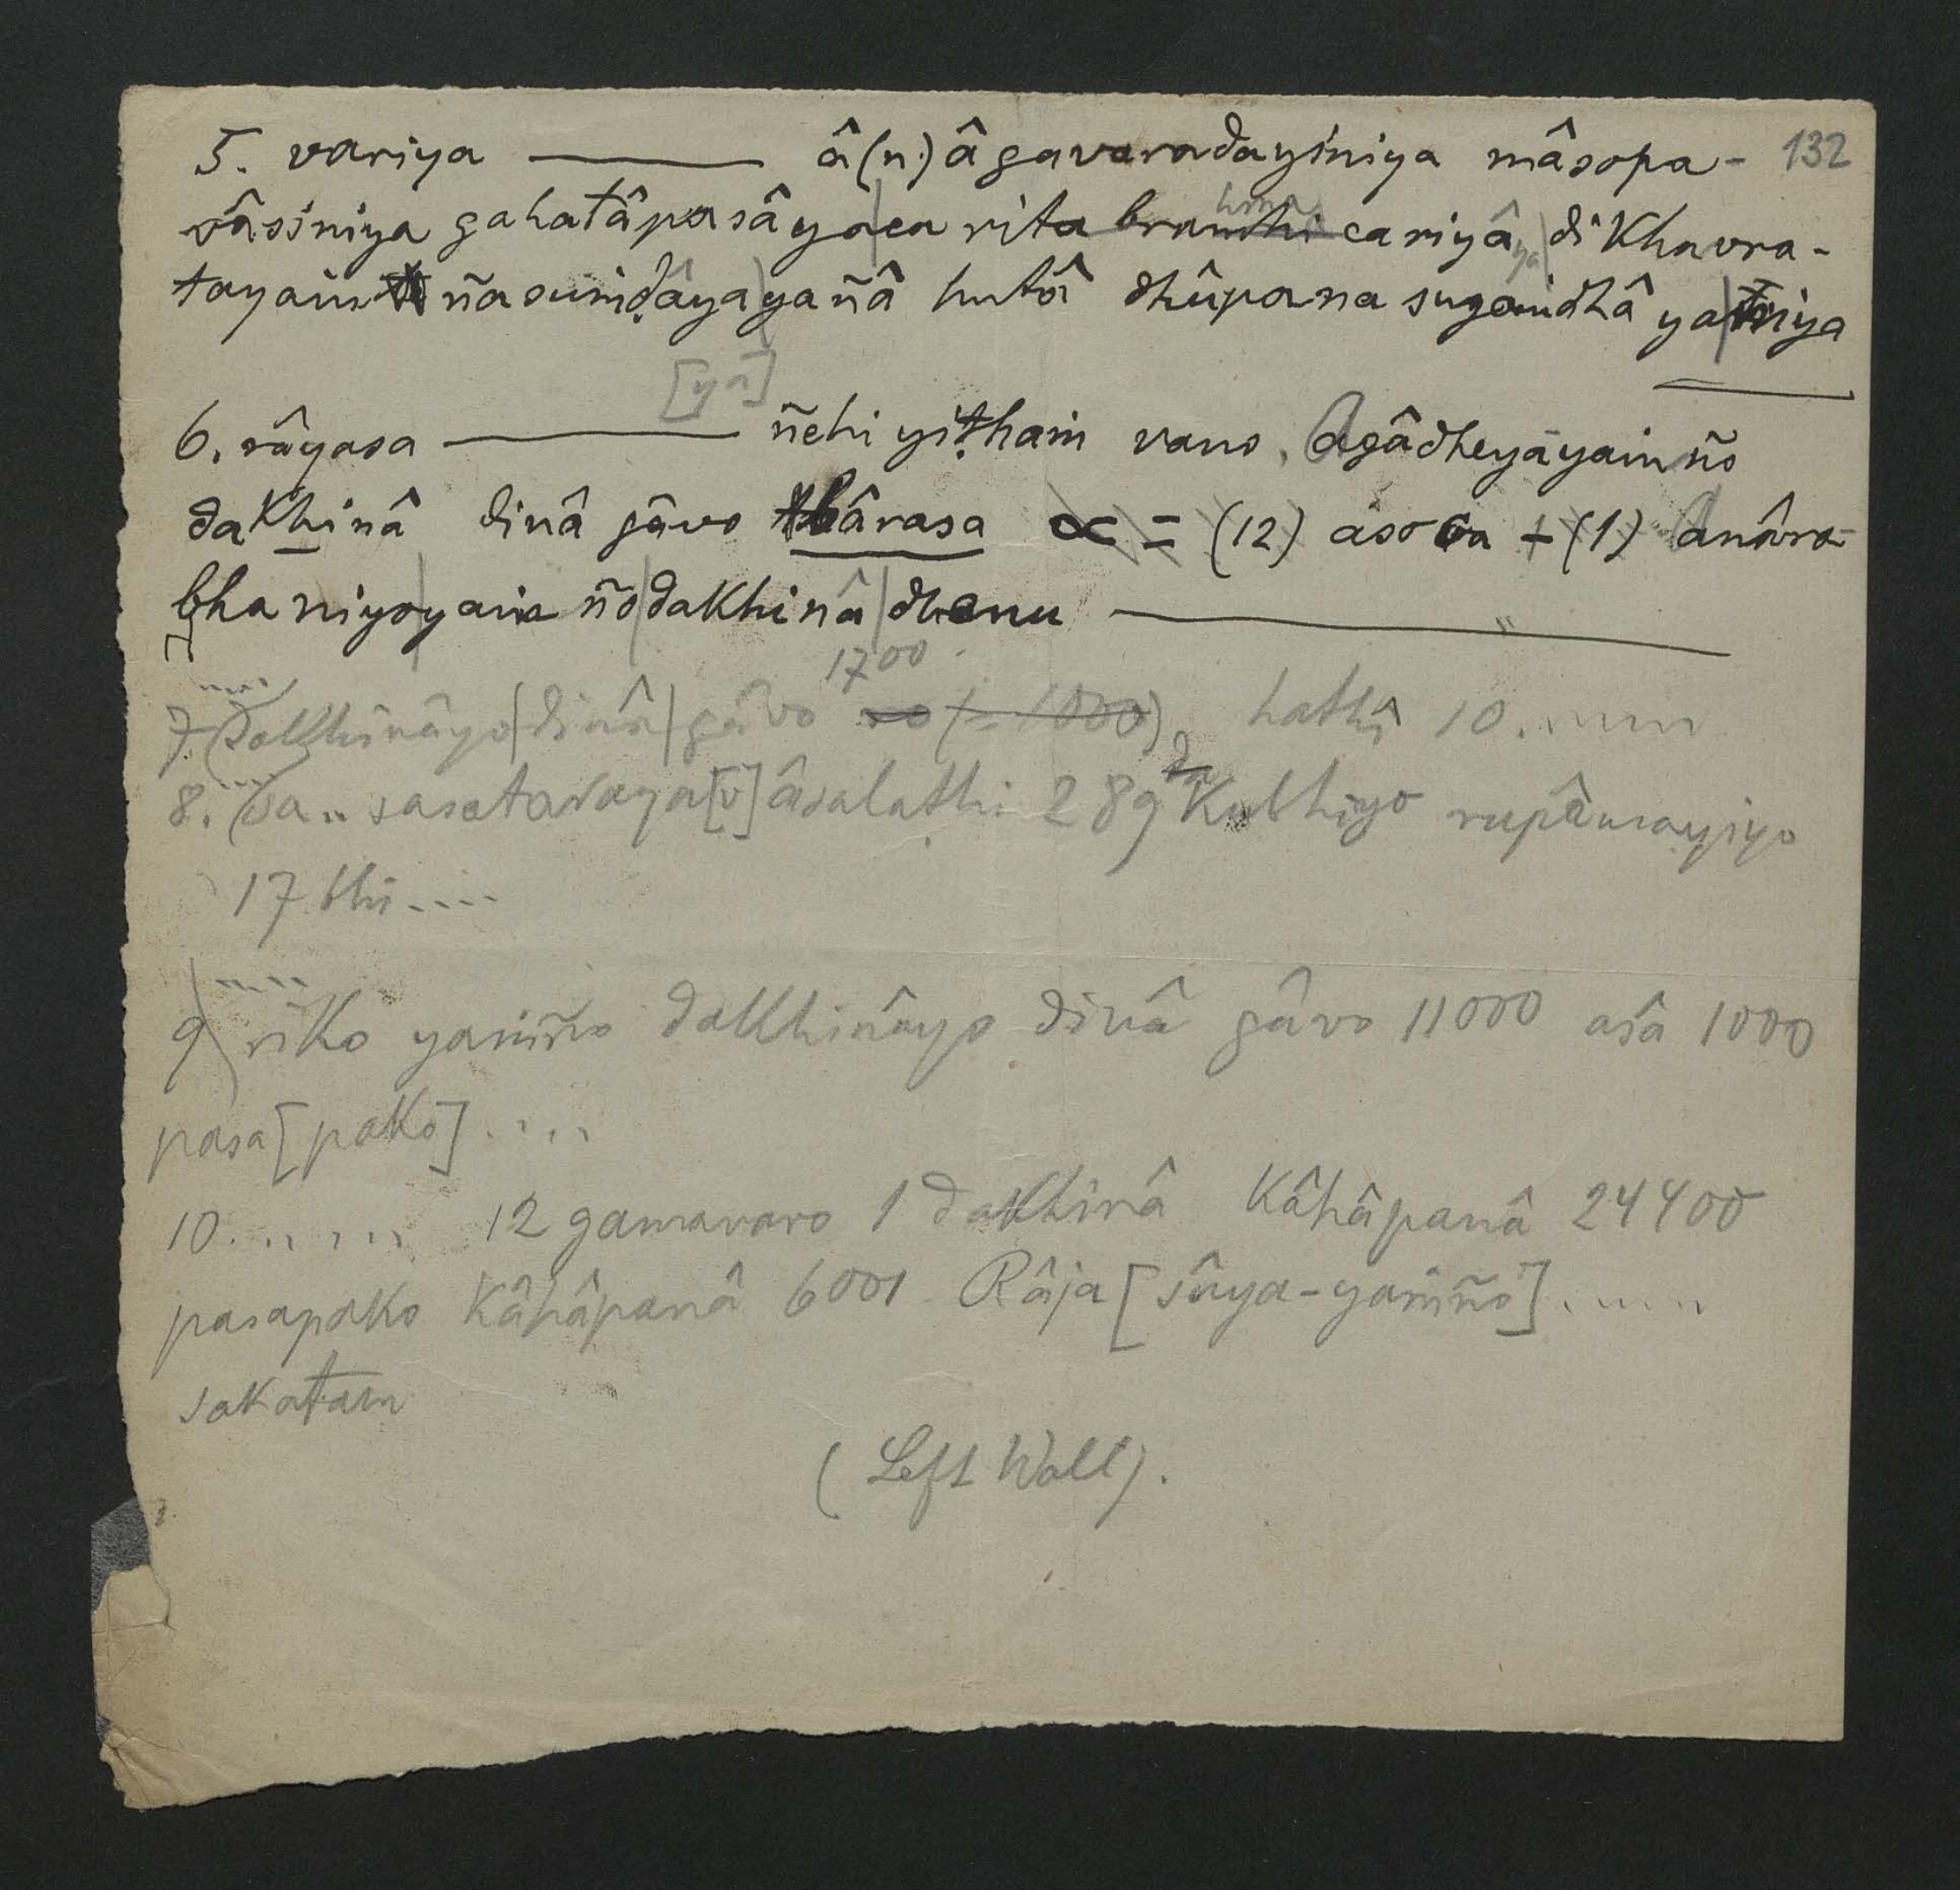 132
5. variya ——— â(n)âgavaradayiniya mâsopa-
vâsiniya gahatâpasâya carita brahmacariyâya dikhavra-
tayaṁñasuṁḍâya yañâ hutâ dhûpanasugaṁdhâ ya niya
[yâ]
6. râyasa ——— ñehi yiṭhaṁ vano. Agâdheyayaṁño
dakhinâ dinâ gâvo bârasa = (12) aso ca + (1) Anâra-
bhaniyoyaṁño dakhinâ dhenu ———
7. .... dakhinâyo dinâ gâvo 1700 (= 1000), hathî 10 .....
8. .... sa .. sasataraya[v]âsalaṭhi 289 Kubhiyo rupâmayiyo
17 bhi ....
9 ..... riko yaṁño dakhinâyo dinâ gâvo 11000 asâ 1000
pasa[pako] ....
10 ..... 12 gamavaro 1 dakhinâ Kâhâpanâ 24400
pasapako Kâhâpanâ 6001 Râja[sûya-yaṁño] .....
sakaṭaṁ
(Left Wall).